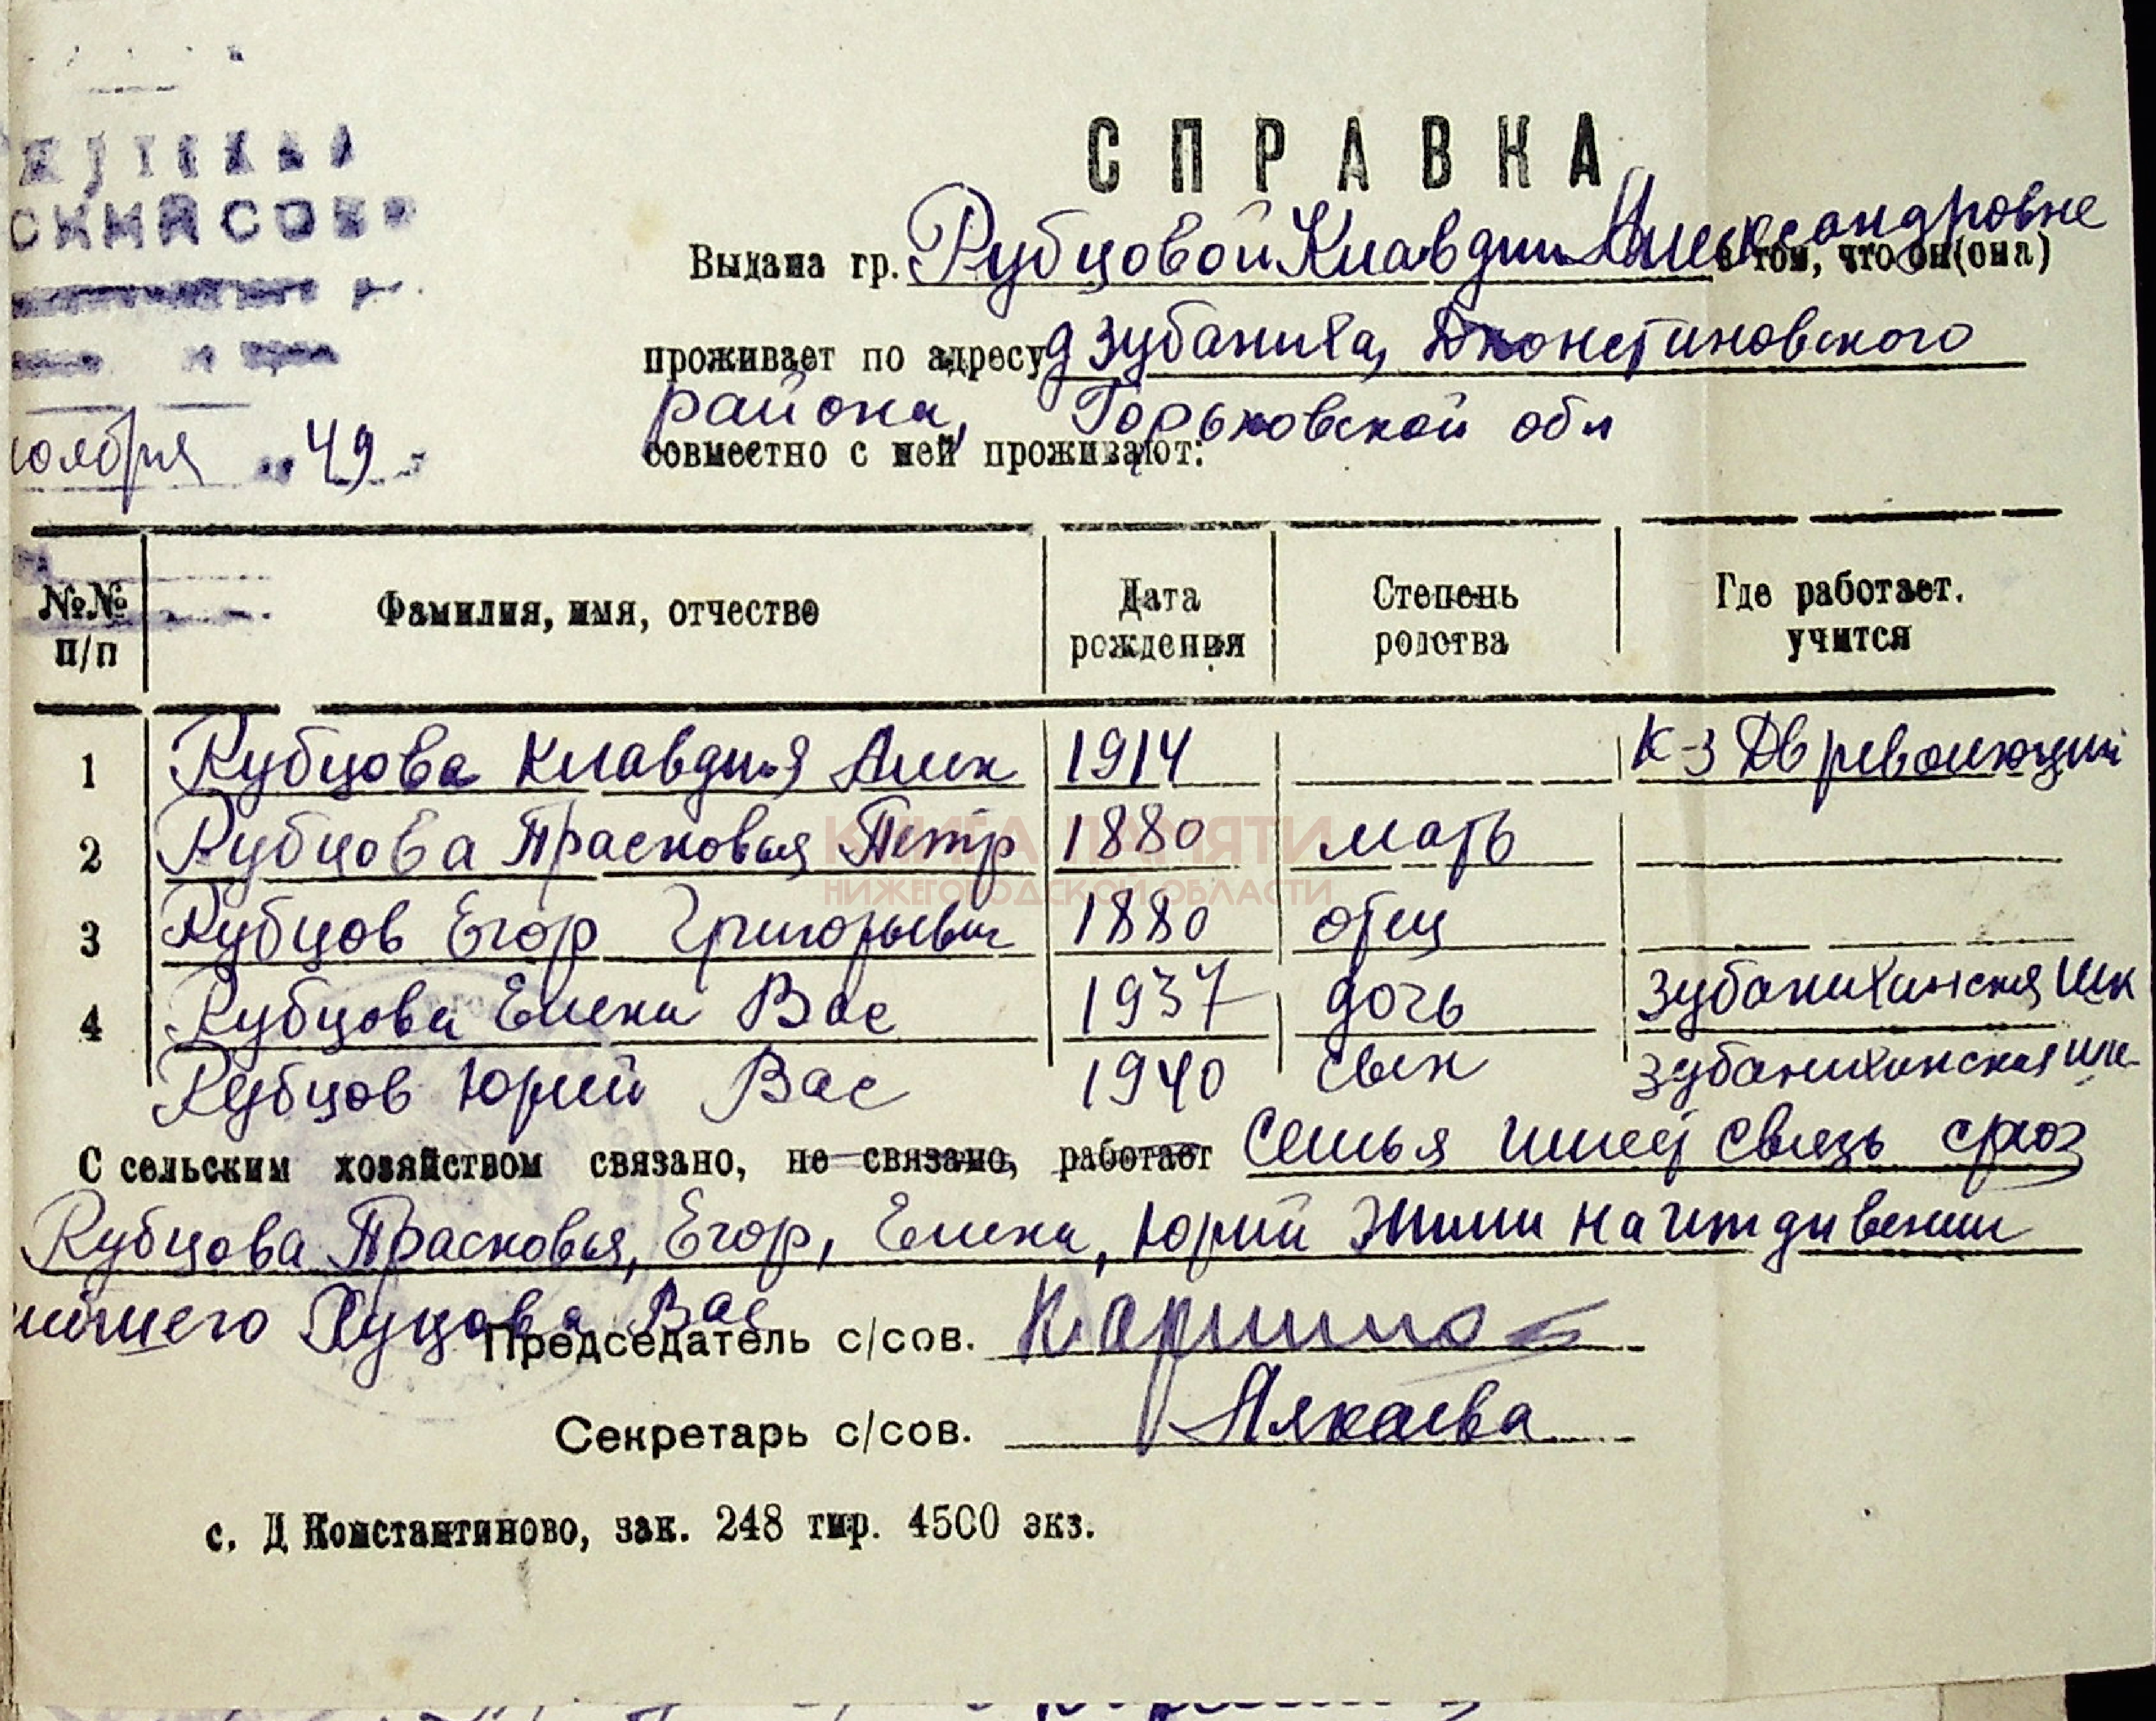 СПРАВКА
СКИЙ СОВЕ
Выдана гр. Рубцовой Клавдии Александровне в том, что он(она)
проживает по адресу д Зубаниха, Дконстиновского
района, Горьковской обл
ноября 49
совместно с ней проживают:
№№ п/п Фамилия, имя, отчество Дата рождения Степень родства Где работает. учится
1 Рубцова Клавдия Алек 1914 К-з Дв революции
2 Рубцова Прасковья Петр 1880 мать
КНИГА ПАМЯТИ
НИЖЕГОРОДСКОЙ ОБЛАСТИ
3 Рубцов Егор Григорьевич 1880 отец
4 Рубцова Елена Вас 1937 дочь Зубанихинская шк
Рубцов Юрий Вас 1940 сын Зубанихинская шк
С сельским хозяйством связано, не связано, работает Семья имеет связь с
Рубцова Прасковья, Егор, Елена, Юрий жили на иждивении
Вас
Председатель с/сов.
Секретарь с/сов.
с. Д Константиново, зак. 248 тир. 4500 экз.